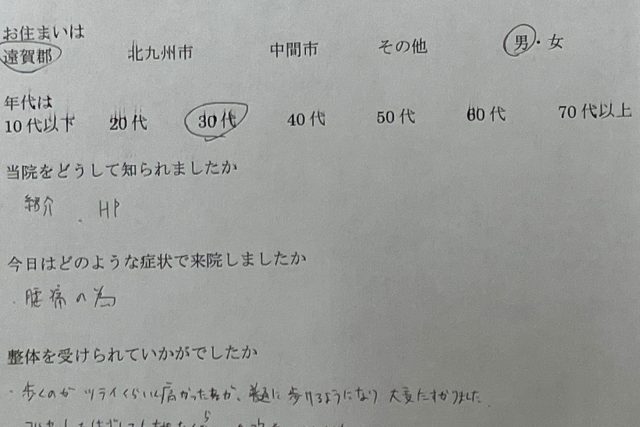 お住まいは
遠賀郡 北九州市 中間市 その他 男・女
年代は
10代以下 20代 30代 40代 50代 60代 70代以上
当院をどうして知られましたか
紹介 、HP
今日はどのような症状で来院しましたか
・腰痛の為
整体を受けられていかがでしたか
・歩くのがツライくらい痛かったのが、普通に歩けるようになり大変たすかりました。